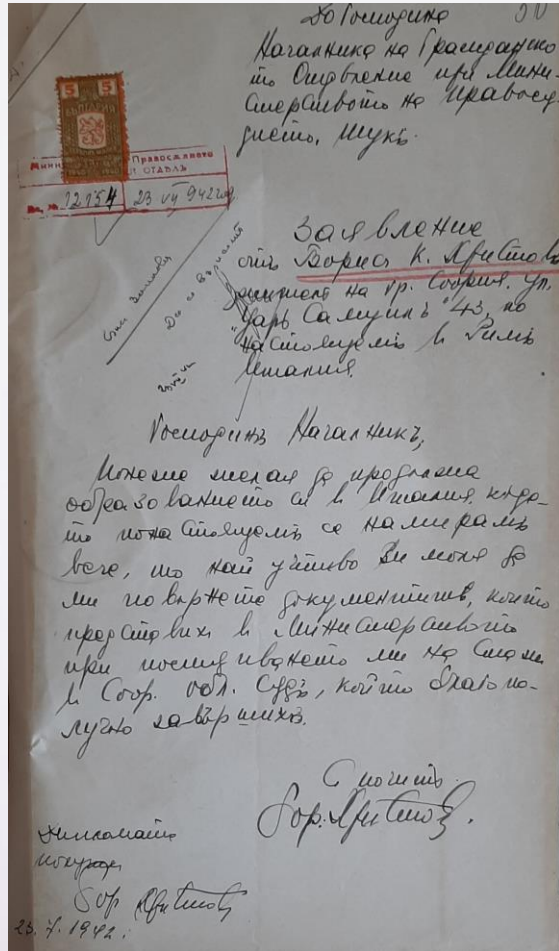 До Господина
Началника на Гражданско
то Отдѣление при Мини-
стерството на правосѫ
дието, тукъ.
5 5
БЪЛГАРИЯ
Правосѫдието
ОТДѢЛЪ
Вх. № 12154 23 VII 942 год
Заявление
отъ Борисъ К. Христовъ
жителъ на гр. София, ул.
"Царь Самуилъ" 43, по
настоящемъ в Римъ
Италия.
Господинъ Началникъ,
Понеже желая да продължа
образованието си в Италия, кѫде-
то понастоящемъ се намирамъ
вече, то най учтиво Ви моля да
ми повърнете документитѣ, които
представихъ в Министерството
при постѫпването ми на стаж
в Соф. обл. сѫдъ, който благопо-
лучно завършихъ.
С почитъ
Бор. Христовъ.
Дипломата
получих
Бор Христовъ
1942.